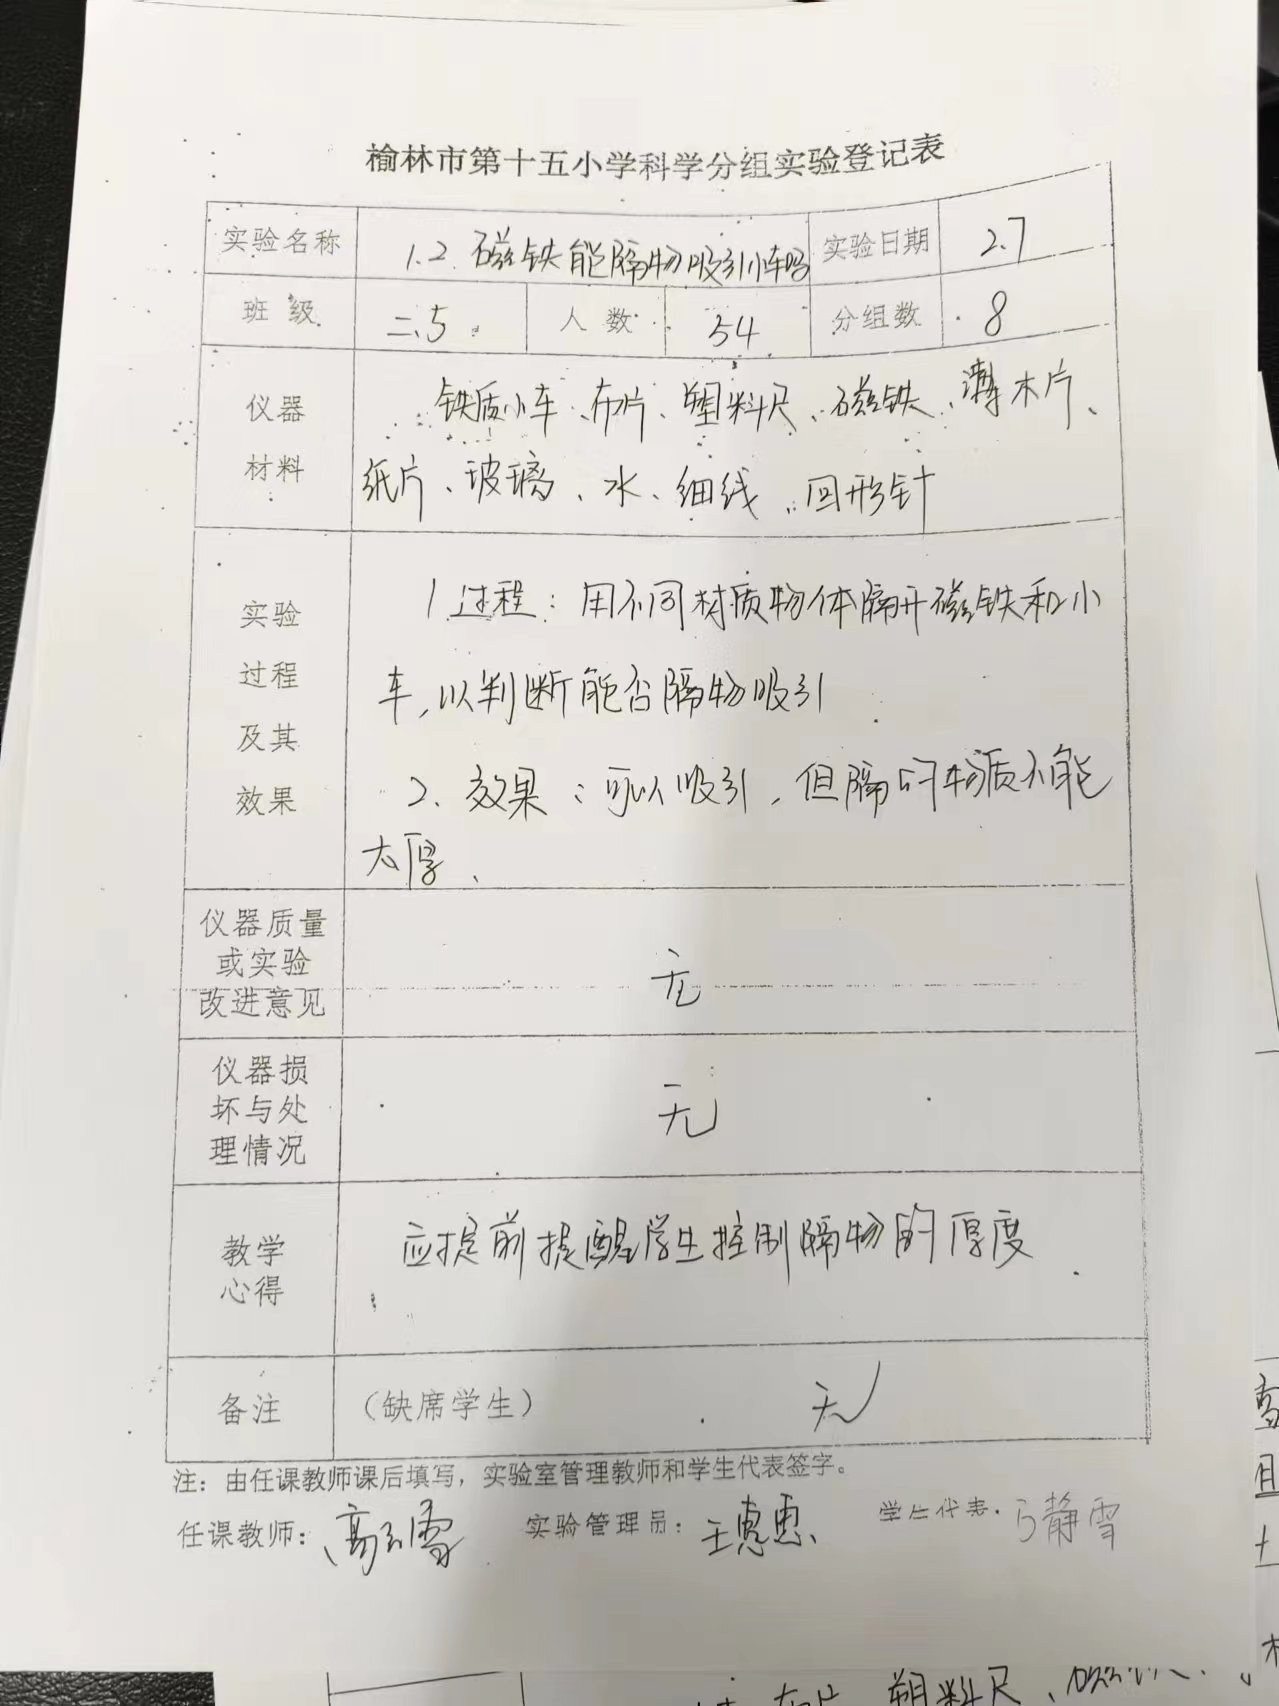 榆林市第十五小学科学分组实验登记表
实验名称 1.2.磁铁能隔物吸引小车吗 实验日期 2.7
班 级 二.5 人 数 54 分组数 8
仪器
材料
铁质小车、布片、塑料尺、磁铁、薄木片、
纸片、玻璃、水、细线、回形针
实验
过程
及其
效果
1 过程：用不同材质物体隔开磁铁和小
车,以判断能否隔物吸引
2、效果：可以吸引，但隔的物质不能
太厚、
仪器质量
或实验
改进意见
无
仪器损
坏与处
理情况
无
教学
心得
应提前提醒学生控制隔物的厚度
备注 （缺席学生） 无
注：由任课教师课后填写，实验室管理教师和学生代表签字。
任课教师： 实验管理员： 王惠惠 学生代表： 静雪
布片、塑料尺、磁铁、